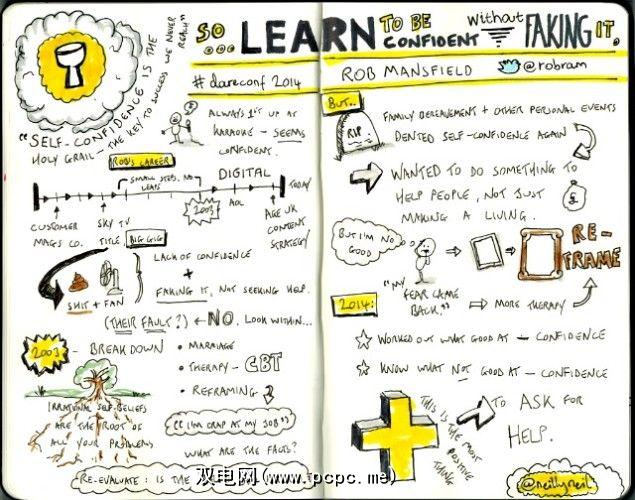 SO ... LEARN TO BE CONFIDENT without FAKING IT.
# dareconf 2014
ROB MANSFIELD @robram
"SELF-CONFIDENCE IS THE
HOLY GRAIL - THE KEY TO SUCCESS WE NEVER REACH"
ALWAYS 1ST UP AT
KARAOKE - SEEMS
CONFIDENT.
ROB'S CAREER
SMALL STEPS, NO
LEAPS
DIGITAL
TODAY
2003
AOL
CUSTOMER
MAGS CO.
SKY TV
TITLE,
BIG GIG
AGE UK
CONTENT
STRATEGY
SHIT + FAN
LACK OF CONFIDENCE
+
FAKING IT, NOT SEEKING HELP.
(THEIR FAULT?) ← NO. LOOK WITHIN...
2003 - BREAKDOWN
• MARRIAGE
• THERAPY - CBT
• REFRAMING
IRRATIONAL SELF-BELIEFS
ARE THE ROOT OF
ALL YOUR PROBLEMS
"I'M CRAP AT MY JOB"
WHAT ARE THE FACTS?
RE-EVALUATE: IS THE
BUT..
RIP
FAMILY BEREAVEMENT + OTHER PERSONAL EVENTS
DENTED SELF-CONFIDENCE AGAIN
WANTED TO DO SOMETHING TO
HELP PEOPLE, NOT JUST
MAKING A LIVING.
BUT I'M NO
GOOD
RE-
FRAME
"MY
FEAR CAME
BACK."
2014:
⇒ MORE THERAPY
☆ WORKED OUT WHAT GOOD AT - CONFIDENCE
☆ KNOW WHAT NOT GOOD AT - CONFIDENCE
TO ASK FOR
HELP.
THIS IS THE MOST
POSITIVE
THING
@neillyneil
双电网(www.pcpc.me)